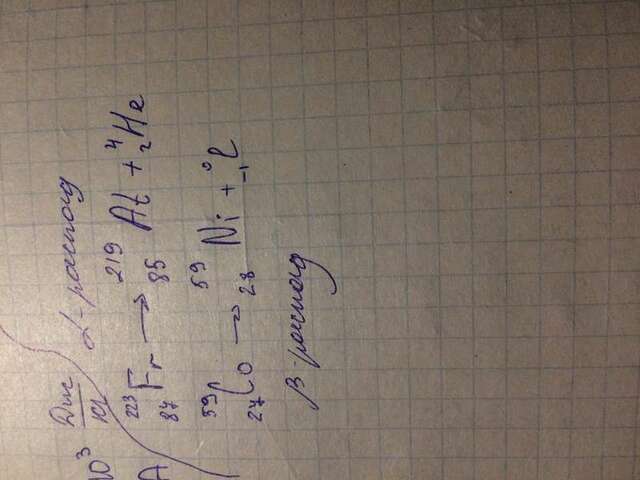 10³ Дж/кг
А
α-распад
²²³₈₇Fr → ²¹⁹₈₅At + ⁴₂He
⁵⁹₂₇Co → ⁵⁹₂₈Ni + ⁰₋₁e
β-распад